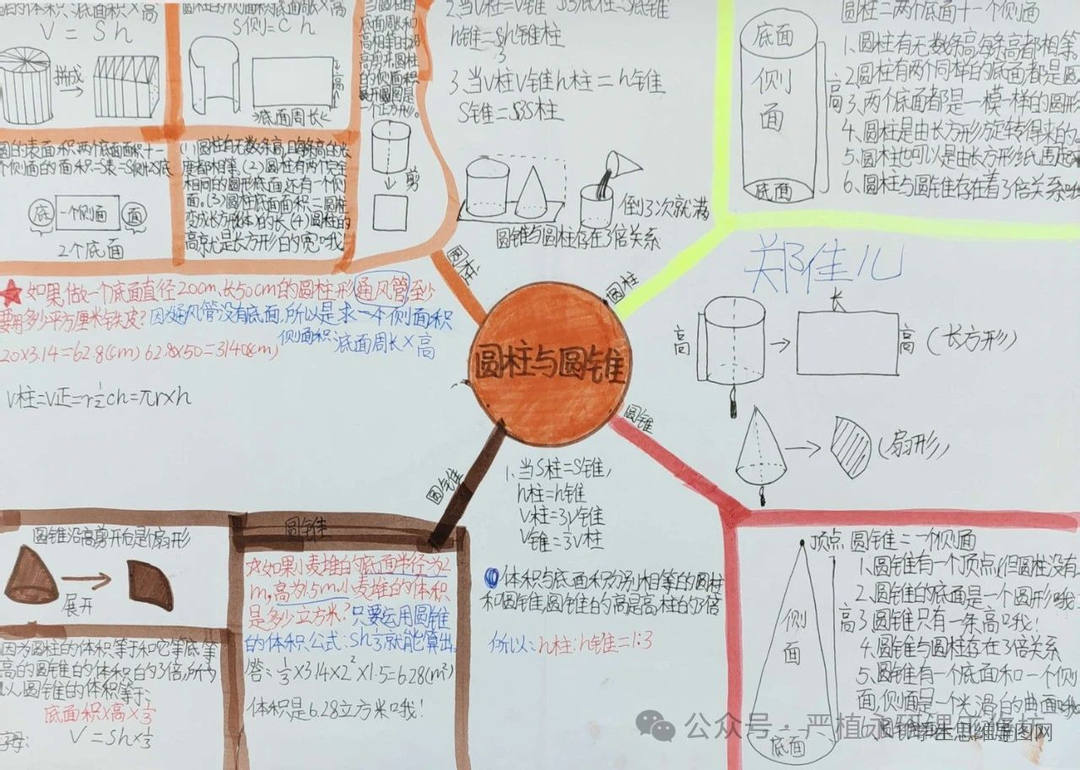 V = Sh
拼成
圆柱的侧面积=底面周长×高
S侧=Ch
高
底面周长
底
一个侧面
面
2个底面
(1)圆柱有无数条高,且每条高的长
度都相等。(2)圆柱有两个完全
相同的圆形底面还有一个侧
面。(3)圆柱底面面积=圆柱
高就是长方形的宽哦
剪
圆柱
h锥=
3.当V柱=V锥 h柱=h锥
S锥=3S柱
倒3次就满
圆锥与圆柱存在3倍关系
圆柱
底面
侧面
高
底面
圆柱=两个底面+一个侧面
1.圆柱有无数条高每条高都相等
2.圆柱有两个同样的底面都是圆
3.两个底面都是一模一样的圆形
4.圆柱是由长方形旋转得来的
5.圆柱也可以是由长方形纸
6.圆柱与圆锥存在着3倍关系哦
如果做一个底面直径20cm,长50cm的圆柱形通风管至少
要用多少平方厘米铁皮?因为通风管没有底面,所以是求一个侧面积
侧面积:底面周长×高
20×3.14=62.8(cm) 62.8×50=3140(cm)
圆柱与圆锥
郑佳儿
高
长
高
(长方形)
(扇形)
圆锥
圆锥
1.当S柱=S锥,
h柱=h锥
V柱=3V锥
V锥=⅓V柱
体积与底面积分别相等的圆柱
和圆锥,圆锥的高是高柱的3倍
所以:h柱:h锥=1:3
圆锥沿高剪开是(扇形
展开
因为圆柱的体积等于和它等底等
高的圆锥的体积的3倍,所
以圆锥的体积等于:
底面积×高×⅓
字母: V=Sh×⅓
圆锥
如果小麦堆的底面半径为2
m,高为1.5m,小麦堆的体积
是多少立方米?只要运用圆锥
的体积公式:Sh⅓就能算出。
答:⅓×3.14×2²×1.5=6.28(m³)
体积是6.28立方米哦!
顶点
侧面
高
底面
圆锥=一个侧面
1.圆锥有一个顶点,但圆柱没有
2.圆锥的底面是一个圆形哦
3.圆锥只有一条高哦!
4.圆锥与圆柱存在3倍关系
5.圆锥有一个底面和一个侧
面,侧面是一个光滑的曲面哦
公众号·严植
思维导图网